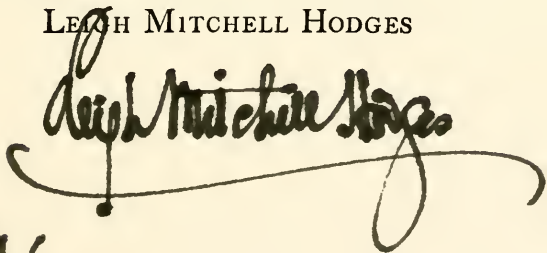 LEIGH MITCHELL HODGES
Leigh Mitchell Hodges